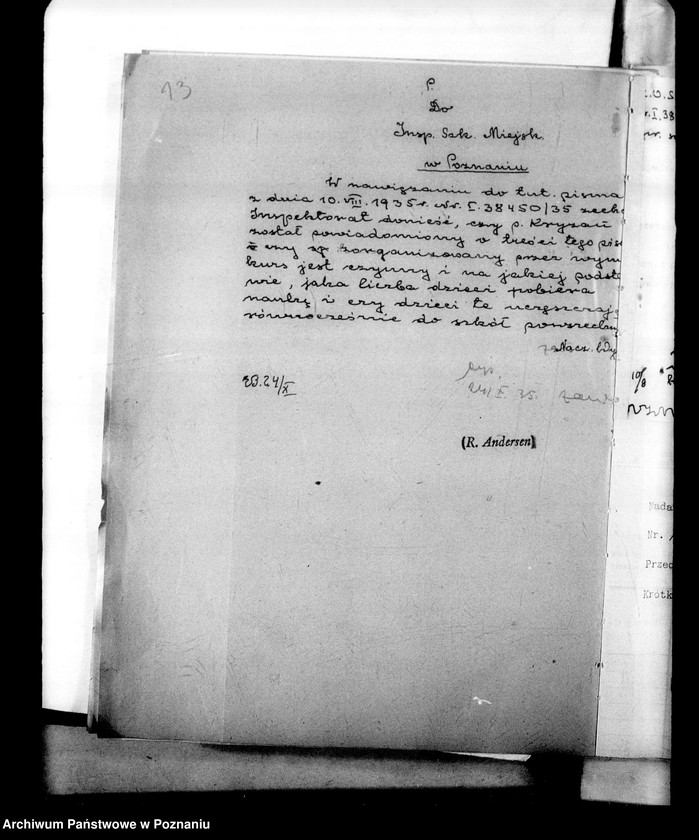 13
P.
Do
Insp. Szk. Miejsk.
w Poznaniu
W nawiązaniu do tut. pisma
z dnia 10.VIII.1935 r. Nr. I.38450/35 zech
Inspektorat donieść, czy p. Kryzan
został powiadomiony o treści tego pis
i czy zorganizowany przez
kurs jest czynny i na jakiej podst
wie, jaka liczba dzieci pobiera
naukę i czy dzieci te uczęszczają
równocześnie do szkół powszechny
Nacz.
24/X
24/X 35.
(R. Andersen)
10/8
Nr.
Przed
Krótk
Archiwum Państwowe w Poznaniu